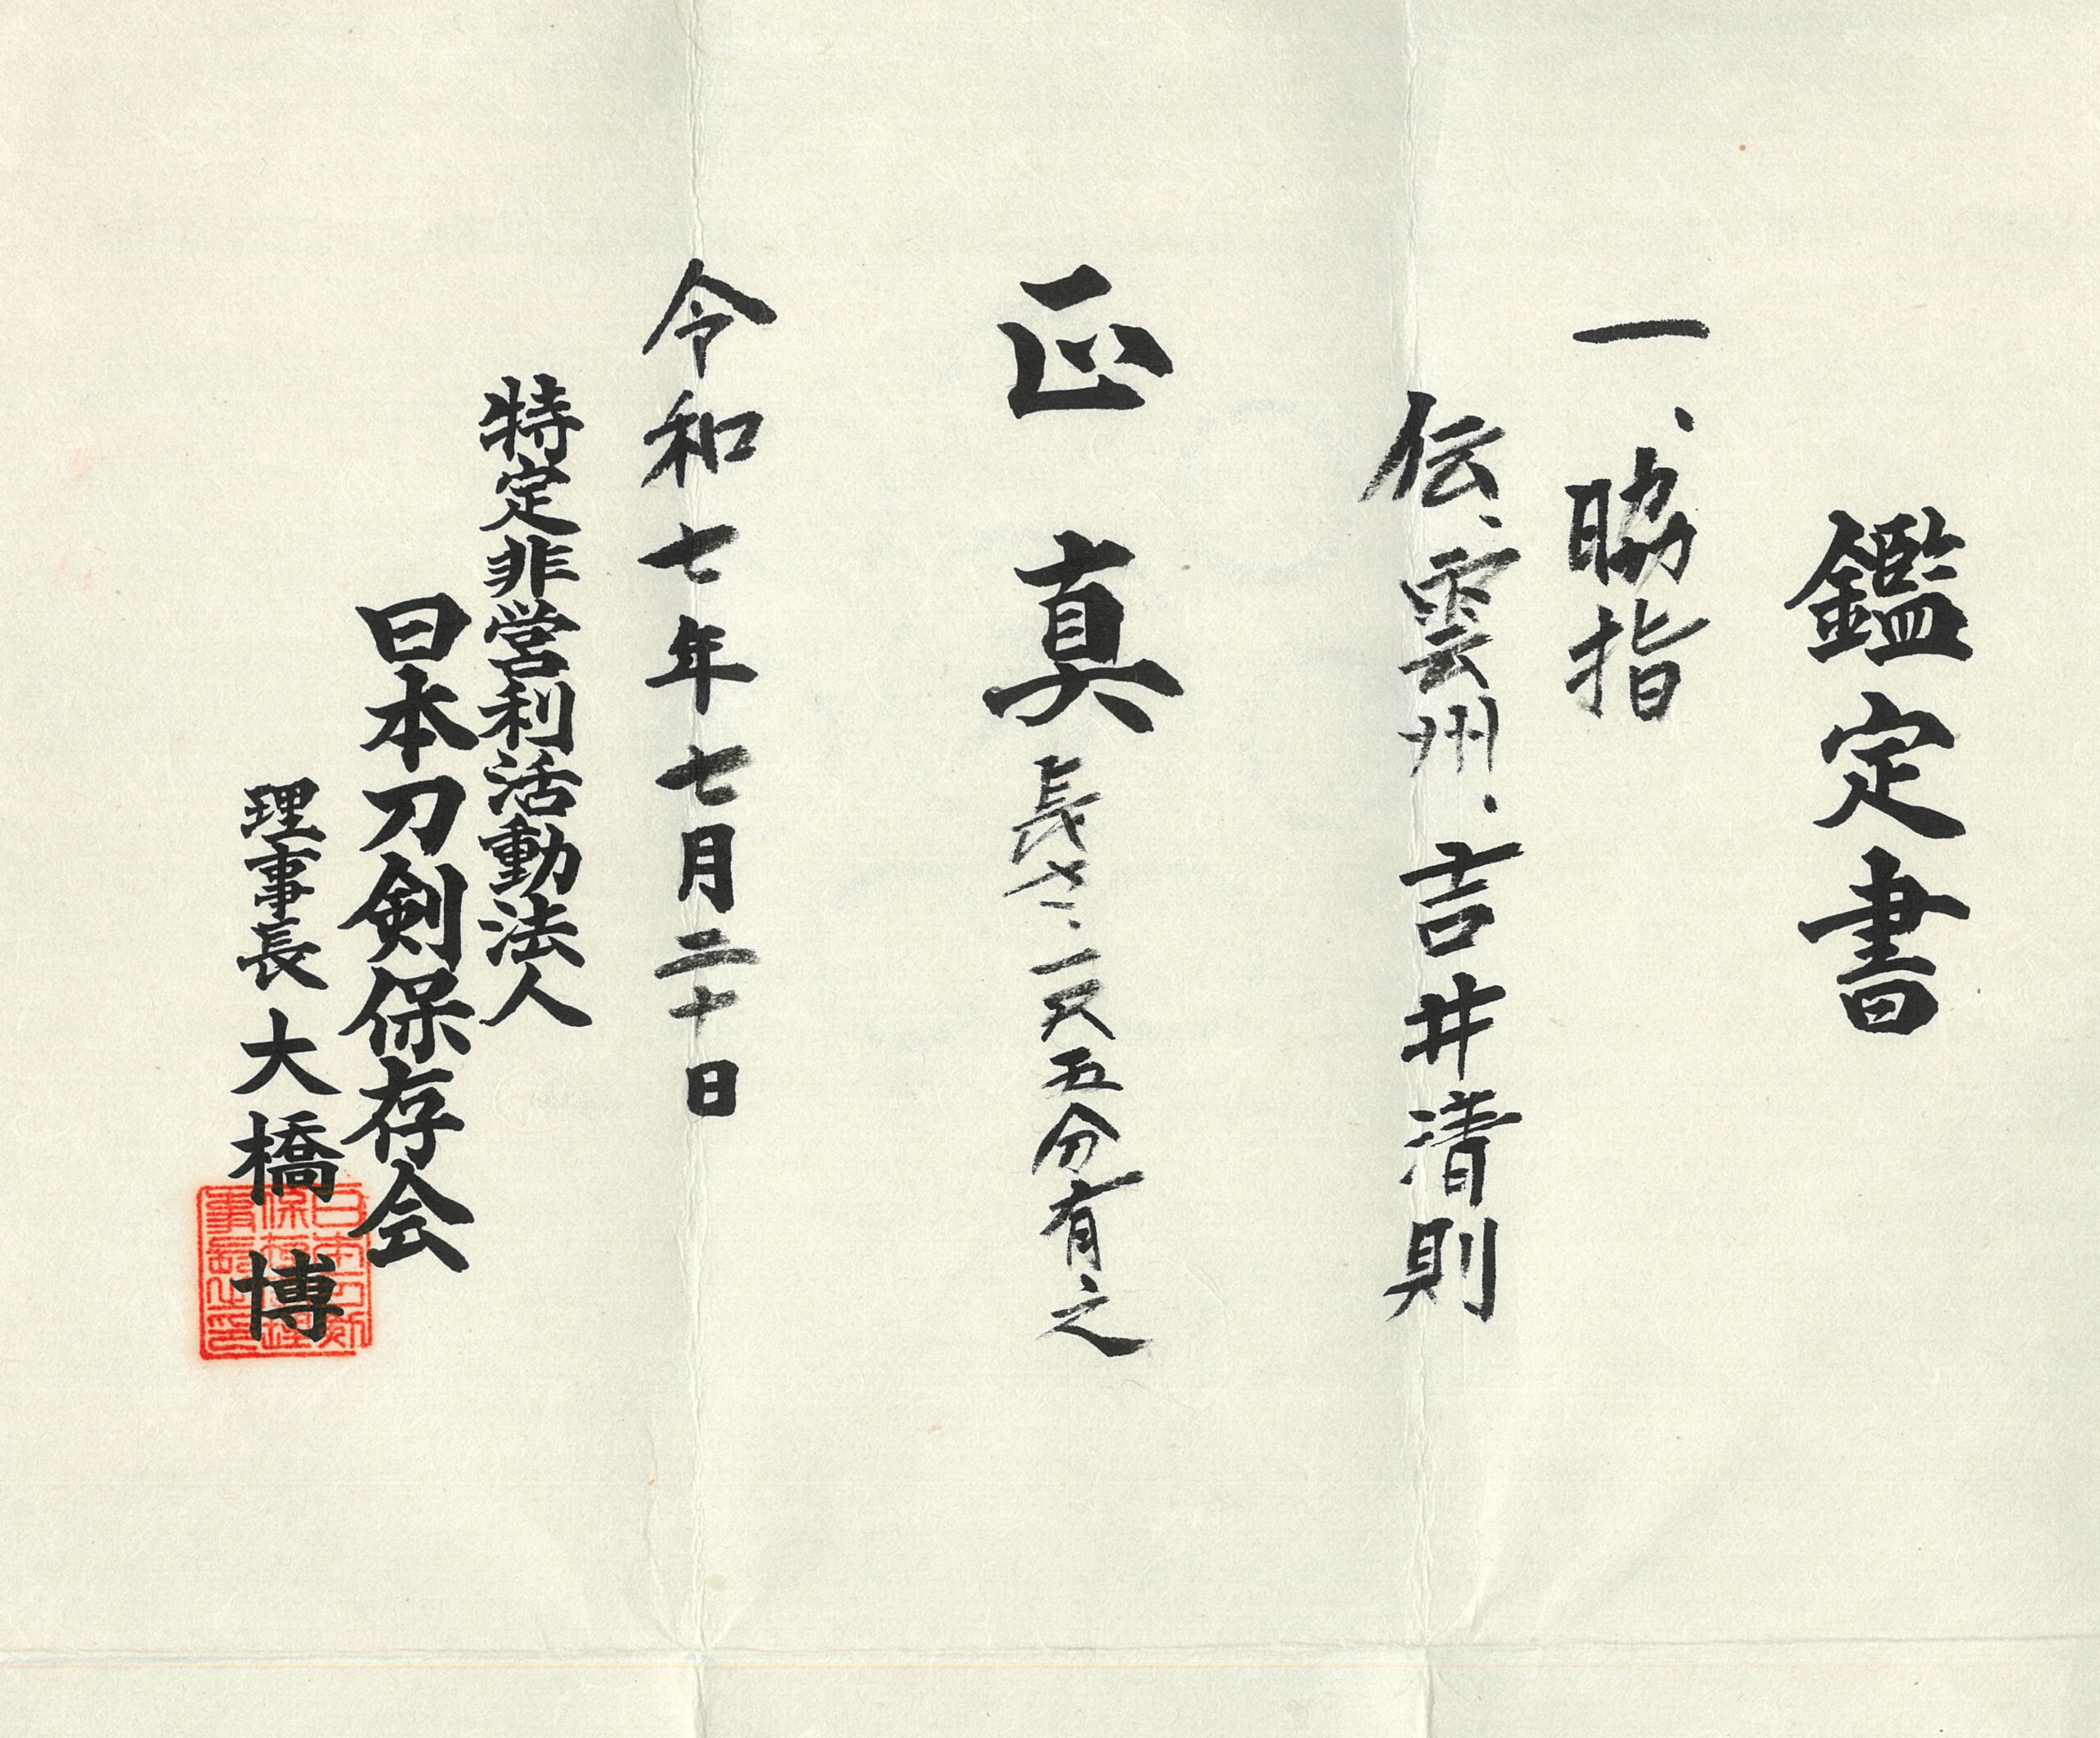 鑑定書
一、脇指
伝、雲州、吉井清則
正真
長さ、一尺五分有之
令和七年七月二十日
特定非営利活動法人
日本刀剣保存会
理事長 大橋博
日本刀剣
保存会理
事長之印